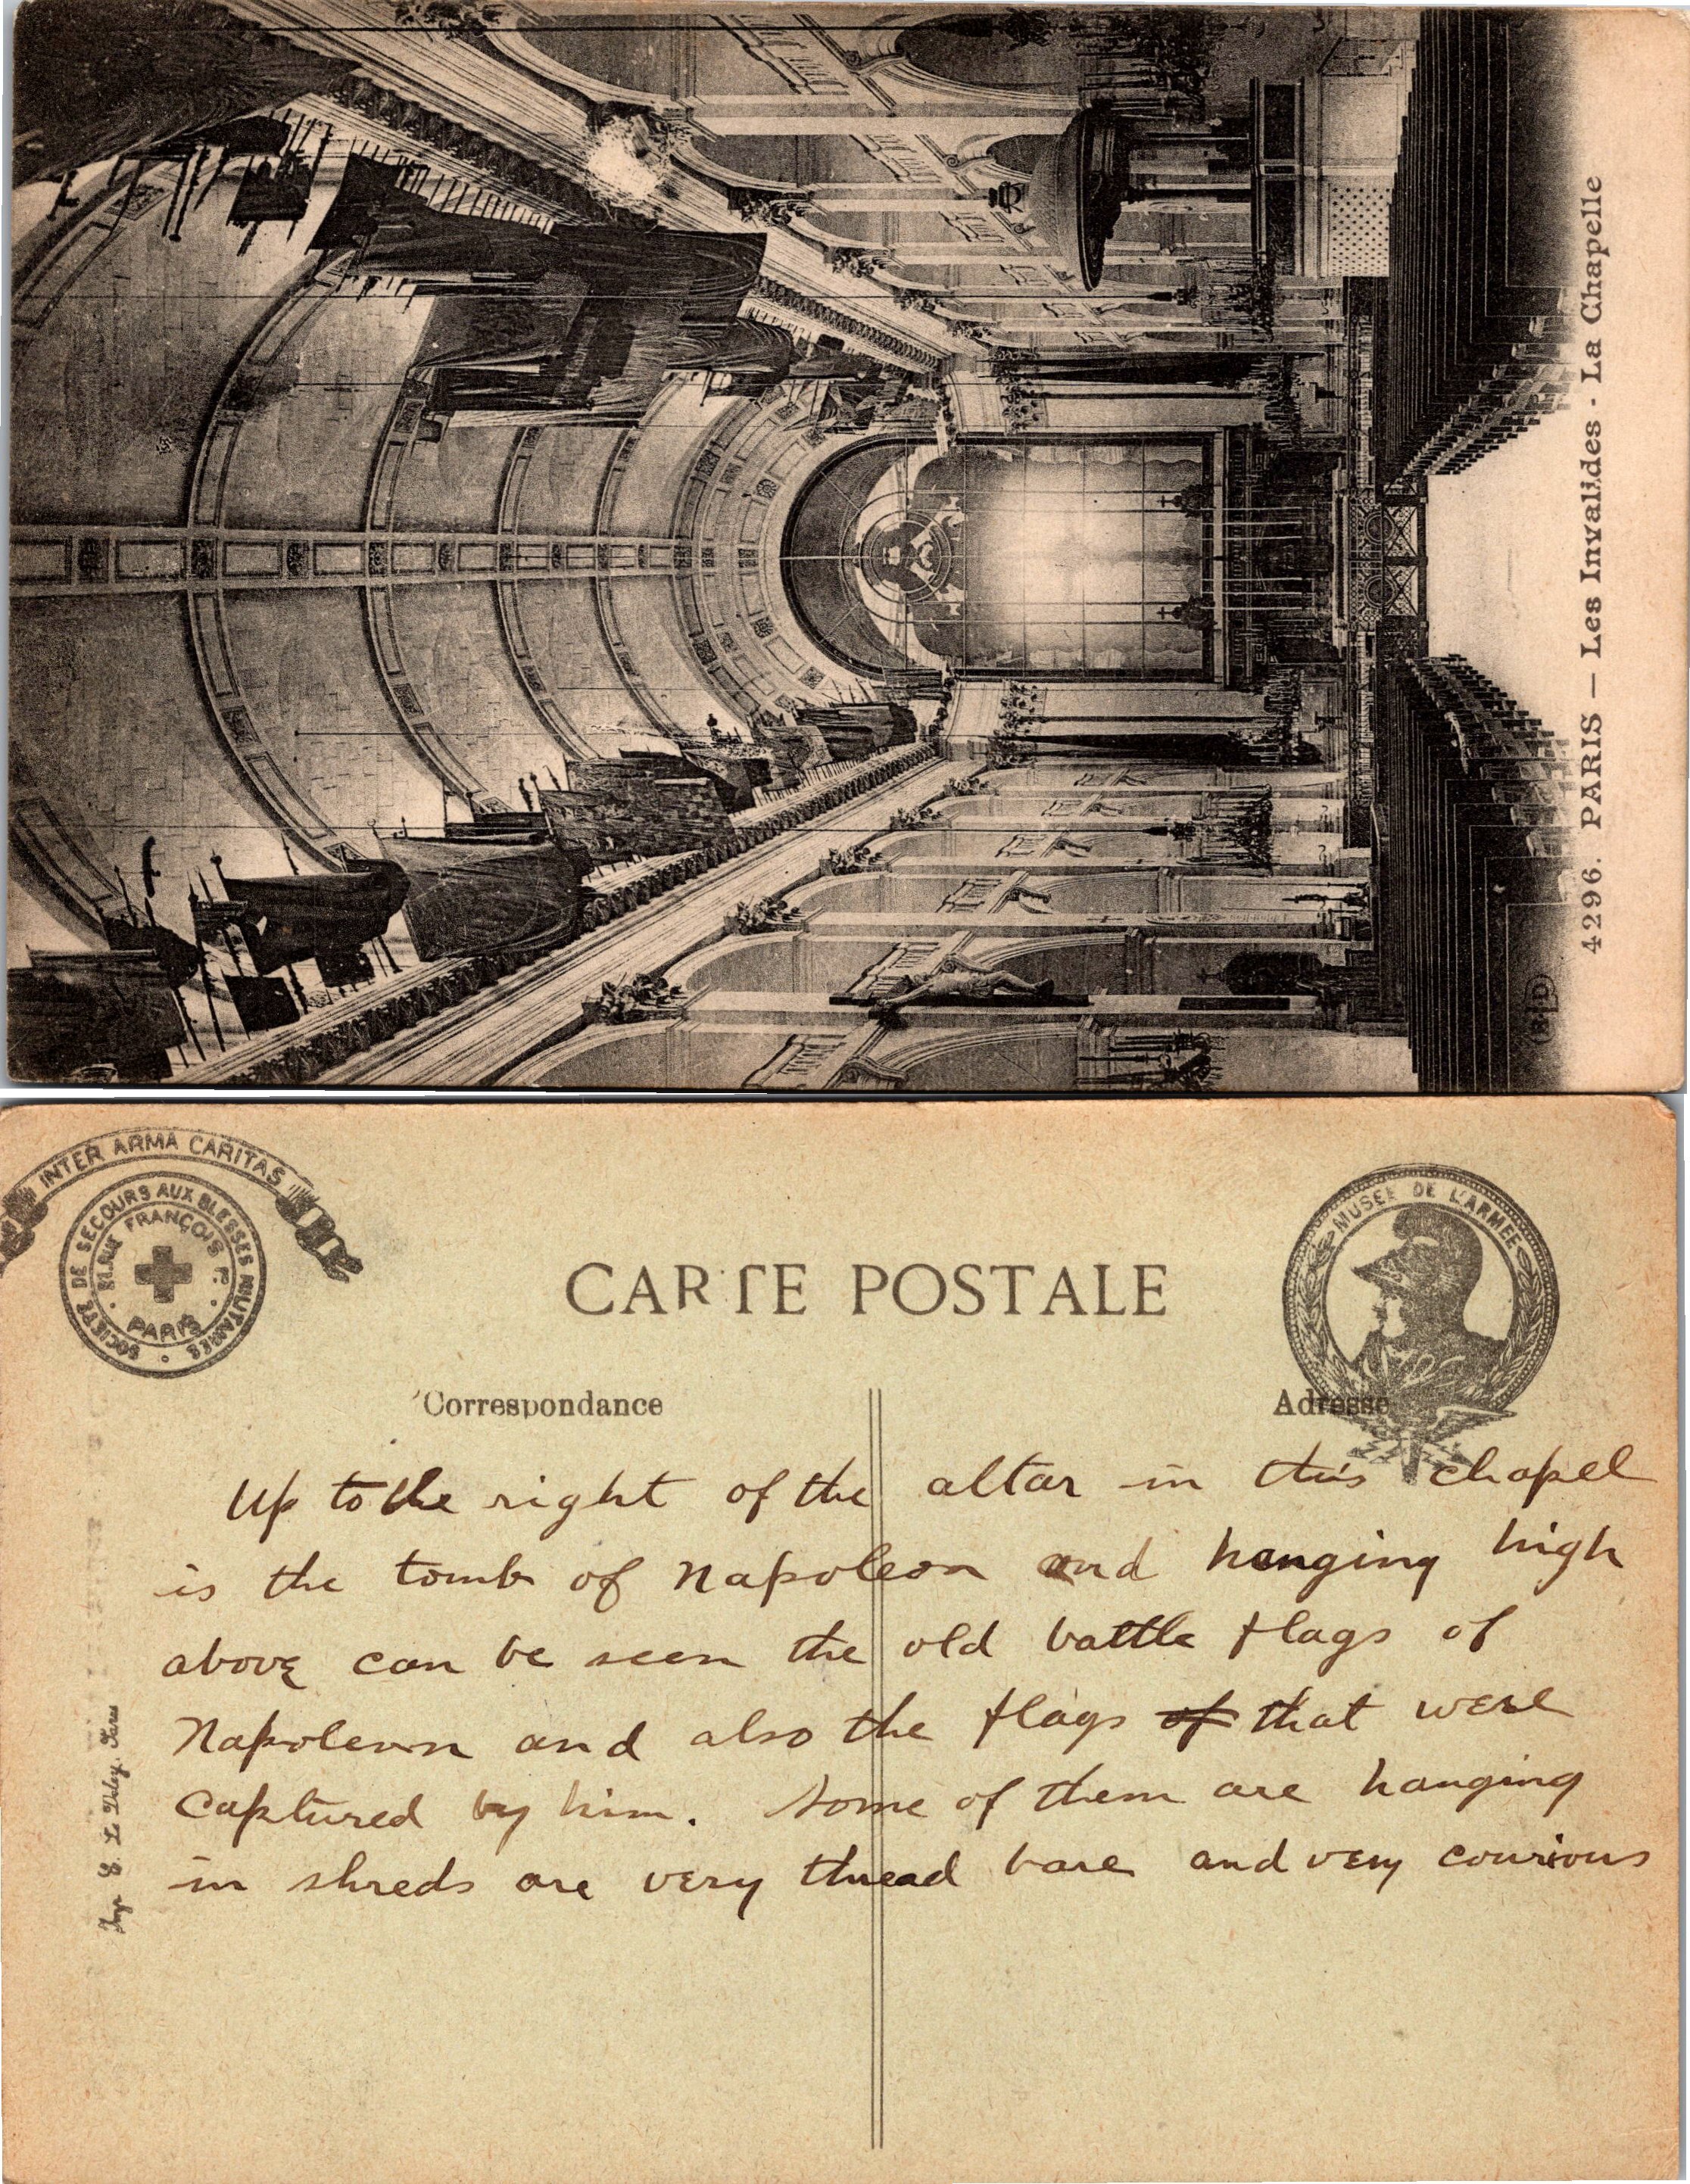 4296. PARIS — Les Invalides - La Chapelle
INTER ARMA CARITAS
SOCIÉTÉ DE SECOURS AUX BLESSÉS MILITAIRES
RUE FRANÇOIS
PARIS
MUSÉE DE L'ARMÉE
CARTE POSTALE
Correspondance
Adresse
Up to the right of the altar in this chapel
is the tomb of Napoleon and hanging high
above can be seen the old battle flags of
Napoleon and also the flags of that were
captured by him. Some of them are hanging
in shreds are very thread bare and very courious
Imp. E. Le Deley, Paris